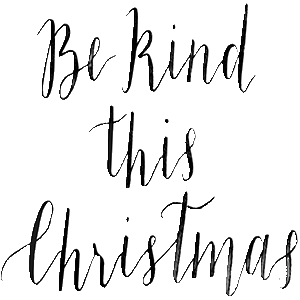 Be kind
this
Christmas